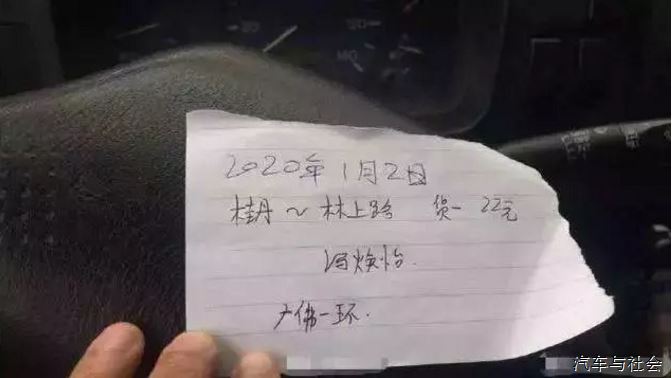 2020年1月2日
桂丹~林上路 货一 22元
冯焕怡.
广佛一环.
汽车与社会